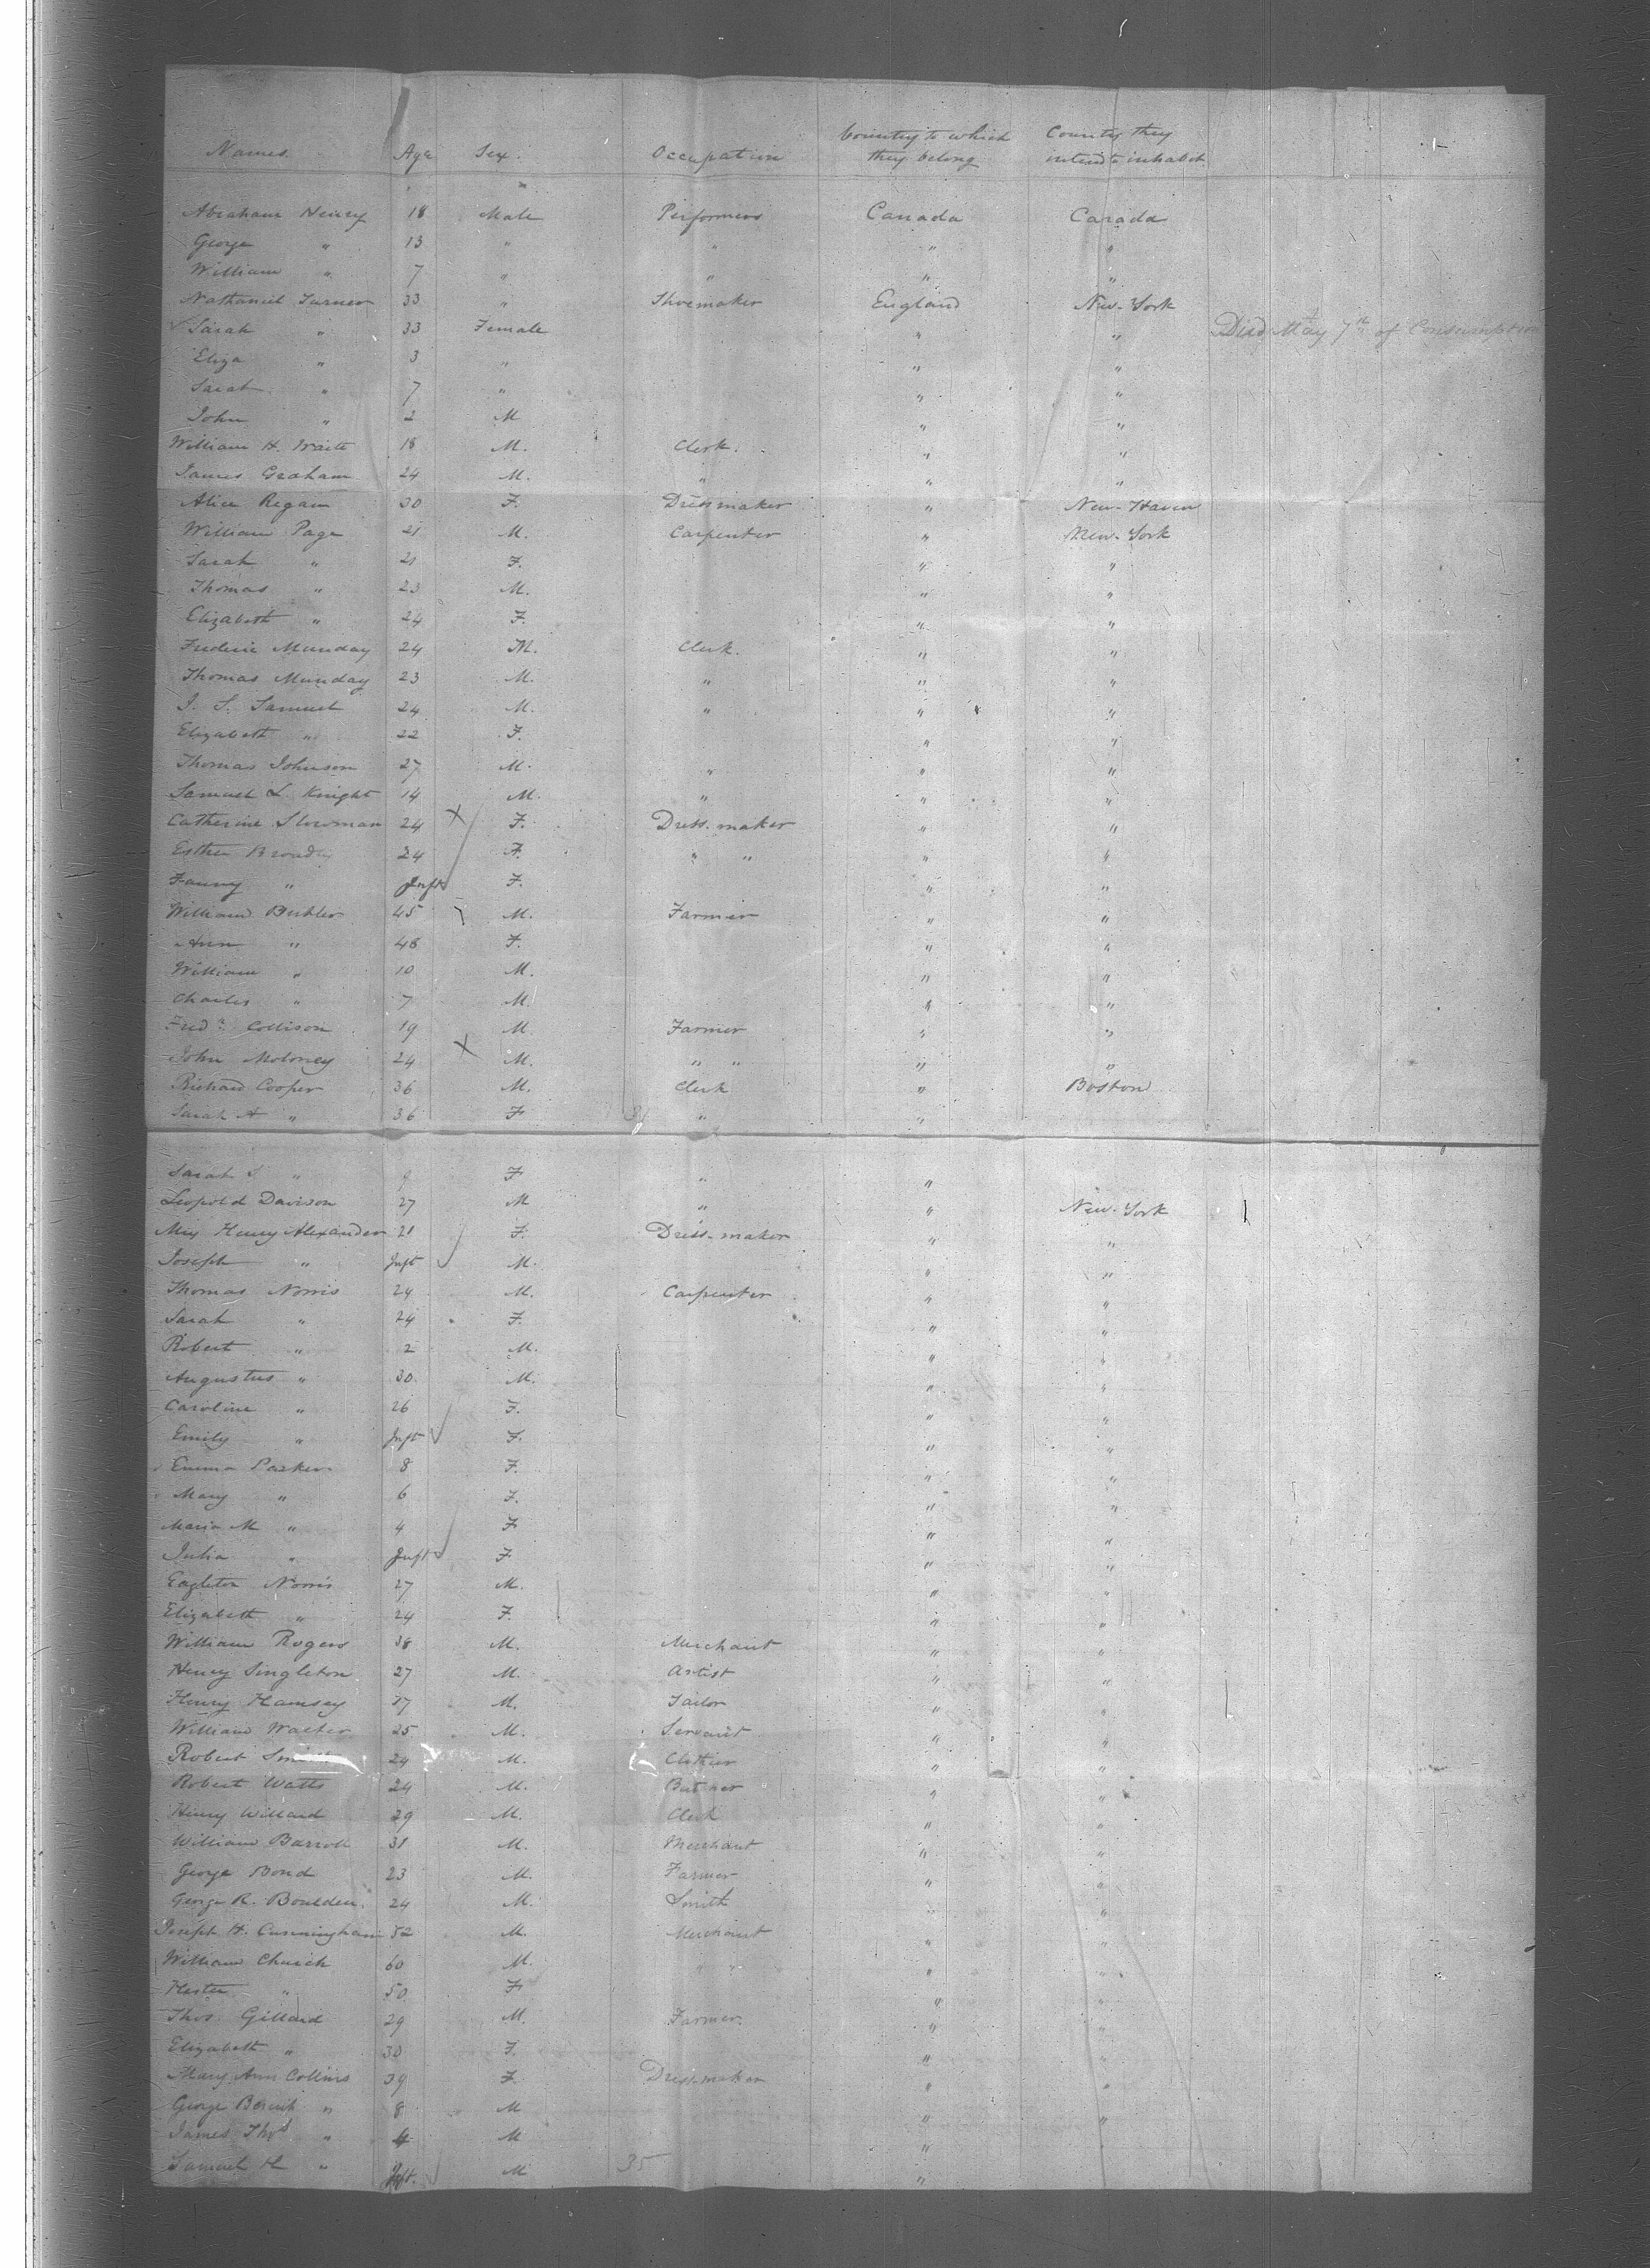 Names. Age Sex. Occupation Country to which they belong Country they intend to inhabit
Abraham Henry 18 Male Performers Canada Canada
George " 13 " " " "
William " 7 " " " "
Nathaniel Turner 33 " Shoemaker England New-York
Sarah " 33 Female " " Died May 7th of Consumption
Eliza " 3 " " "
Sarah " 7 " " "
John " 2 M " "
William H. Waite 18 M. Clerk. " "
James Graham 24 M. " " "
Alice Regan 30 F. Dressmaker " New-Haven
William Page 21 M. Carpenter " New-York
Sarah " 21 F. " "
Thomas " 23 M. " "
Elizabeth " 24 F. " "
Frederic Munday 24 M. Clerk. " "
Thomas Munday 23 M. " " "
J. S. Samuel 24 M. " " "
Elizabeth " 22 F. " "
Thomas Johnson 27 M. " " "
Samuel L. Knight 14 M. " " "
Catherine Slowman 24 X F. Dress-maker " "
Esther Broady 24 F. " " " "
Fanny " Inft F. " "
William Butler 45 M. Farmer " "
Ann " 48 F. " "
William " 10 M. " "
Charles " 7 M. " "
Fredk Collison 19 M. Farmer " "
John Moloney 24 X M. " " " "
Richard Cooper 36 M. Clerk " Boston
Sarah A " 36 F " "
Sarah S " 9 F " "
Leopold Davison 27 M " " New-York
Henry Alexander 21 F. Dress-maker " "
Joseph " Inft M. " "
Thomas Norris 24 M. Carpenter " "
Sarah " 24 F. " "
Robert " 2 M. " "
Augustus " 30 M. " "
Caroline " 26 F. " "
Emily " Inft F. " "
Emma Parker 8 F. " "
Mary " 6 F. " "
Maria M " 4 F " "
Julia " Inft F " "
Eagleton Norris 27 M. " "
Elizabeth " 24 F. " "
William Rogers 38 M. Merchant " "
Henry Singleton 27 M. Artist " "
Henry Hamsey 37 M. Tailor " "
William Walker 25 M. Servant " "
Robert Smith 24 M. Clothier " "
Robert Watts 24 M. Butcher " "
Henry Willard 29 M. Clerk " "
William Barrott 31 M. Merchant " "
George Bond 23 M. Farmer " "
George R. Boulden. 24 M. Smith " "
Joseph H. Cunningham 52 M. Merchant " "
William Church 60 M. " " " "
Hester " 50 F " "
Thos. Gillard 29 M. Farmer. " "
Elizabeth " 30 F. " "
Mary Ann Collins 39 F Dress-maker " "
George " 8 M " "
James Thos " 4 M "
Samuel H " Inft. M 35 "